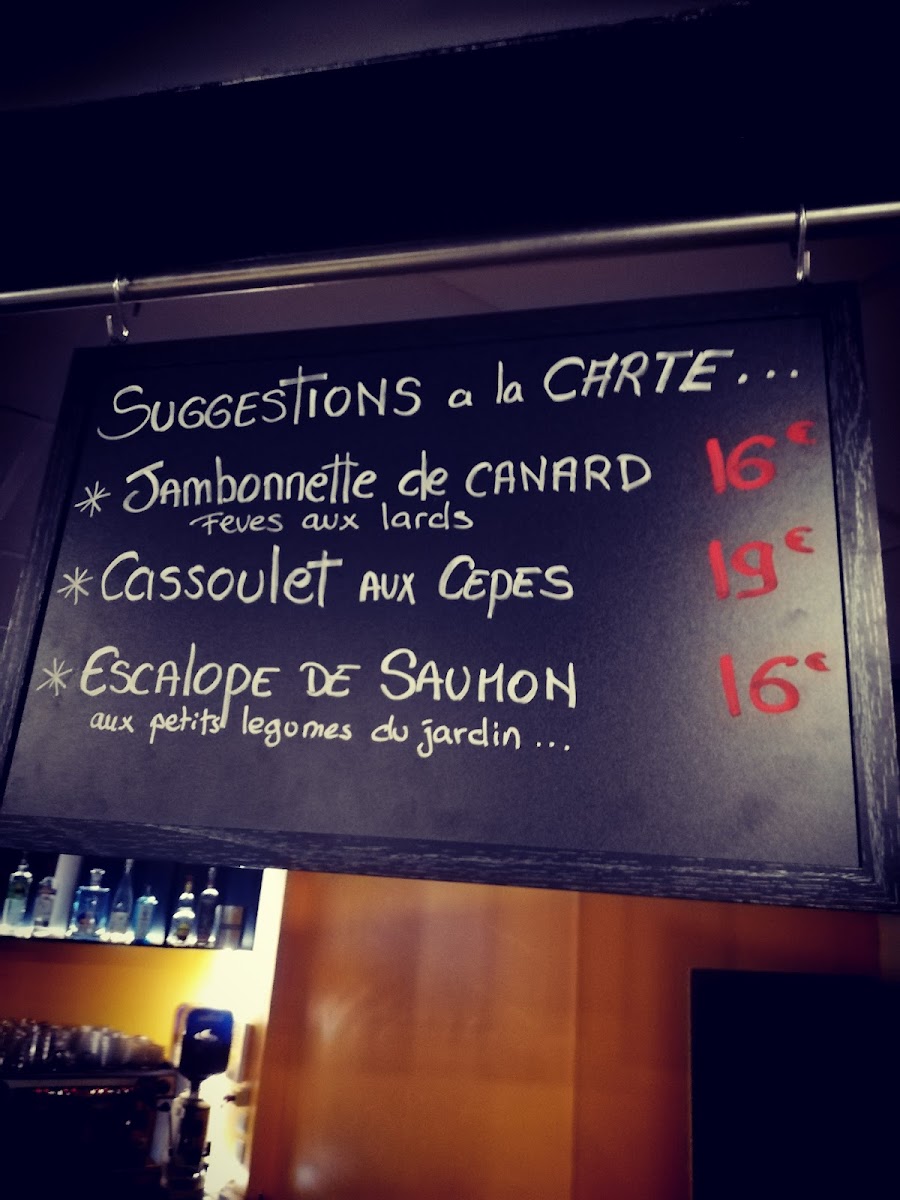 SUGGESTIONS a la CARTE...
* Jambonnette de CANARD 16€
Feves aux lards
* Cassoulet AUX CEPES 19€
* ESCALOPE DE SAUMON 16€
aux petits legumes du jardin ...